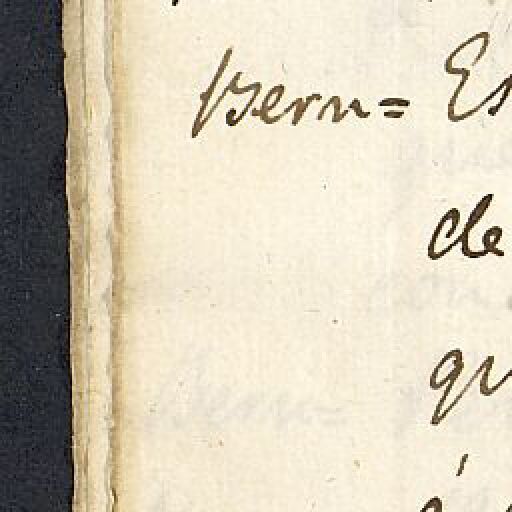 Bern= Es
de
qu
á